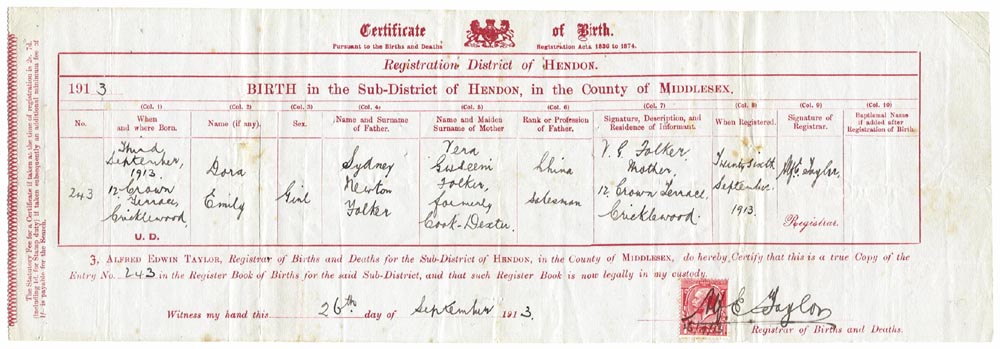 Certificate of Birth.
Pursuant to the Births and Deaths Registration Acts 1836 to 1874.
Registration District of HENDON.
1913. BIRTH in the Sub-District of HENDON, in the County of MIDDLESEX.
(Col. 1) (Col. 2) (Col. 3) (Col. 4) (Col. 5) (Col. 6) (Col. 7) (Col. 8) (Col. 9) (Col. 10)
No. When and where Born. Name (if any). Sex. Name and Surname of Father. Name and Maiden Surname of Mother Rank or Profession of Father. Signature, Description, and Residence of Informant. When Registered. Signature of Registrar. Baptismal Name if added after Registration of Birth.
243
Third
September,
1913.
12 Crown
Terrace,
Cricklewood.
U. D.
Dora
Emily
Girl
Sydney
Newton
Folker
Vera
Folker,
formerly
Cook-Dexter.
China
Salesman
V. E. Folker.
Mother.
12 Crown Terrace,
Cricklewood.
Twenty Sixth
September
1913.
Taylor.
Registrar.
The Statutory Fee for a Certificate if taken at the time of registration is 2s. 7d.
(including 1d. for Stamp duty) if taken subsequently an additional minimum fee of
1/- is payable for the Search.
ALFRED EDWIN TAYLOR, Registrar of Births and Deaths for the Sub-District of HENDON, in the County of MIDDLESEX, do hereby Certify that this is a true Copy of the
Entry No. 243 in the Register Book of Births for the said Sub-District, and that such Register Book is now legally in my custody.
Witness my hand this 26th day of September 1913.
E. Taylor
Registrar of Births and Deaths.